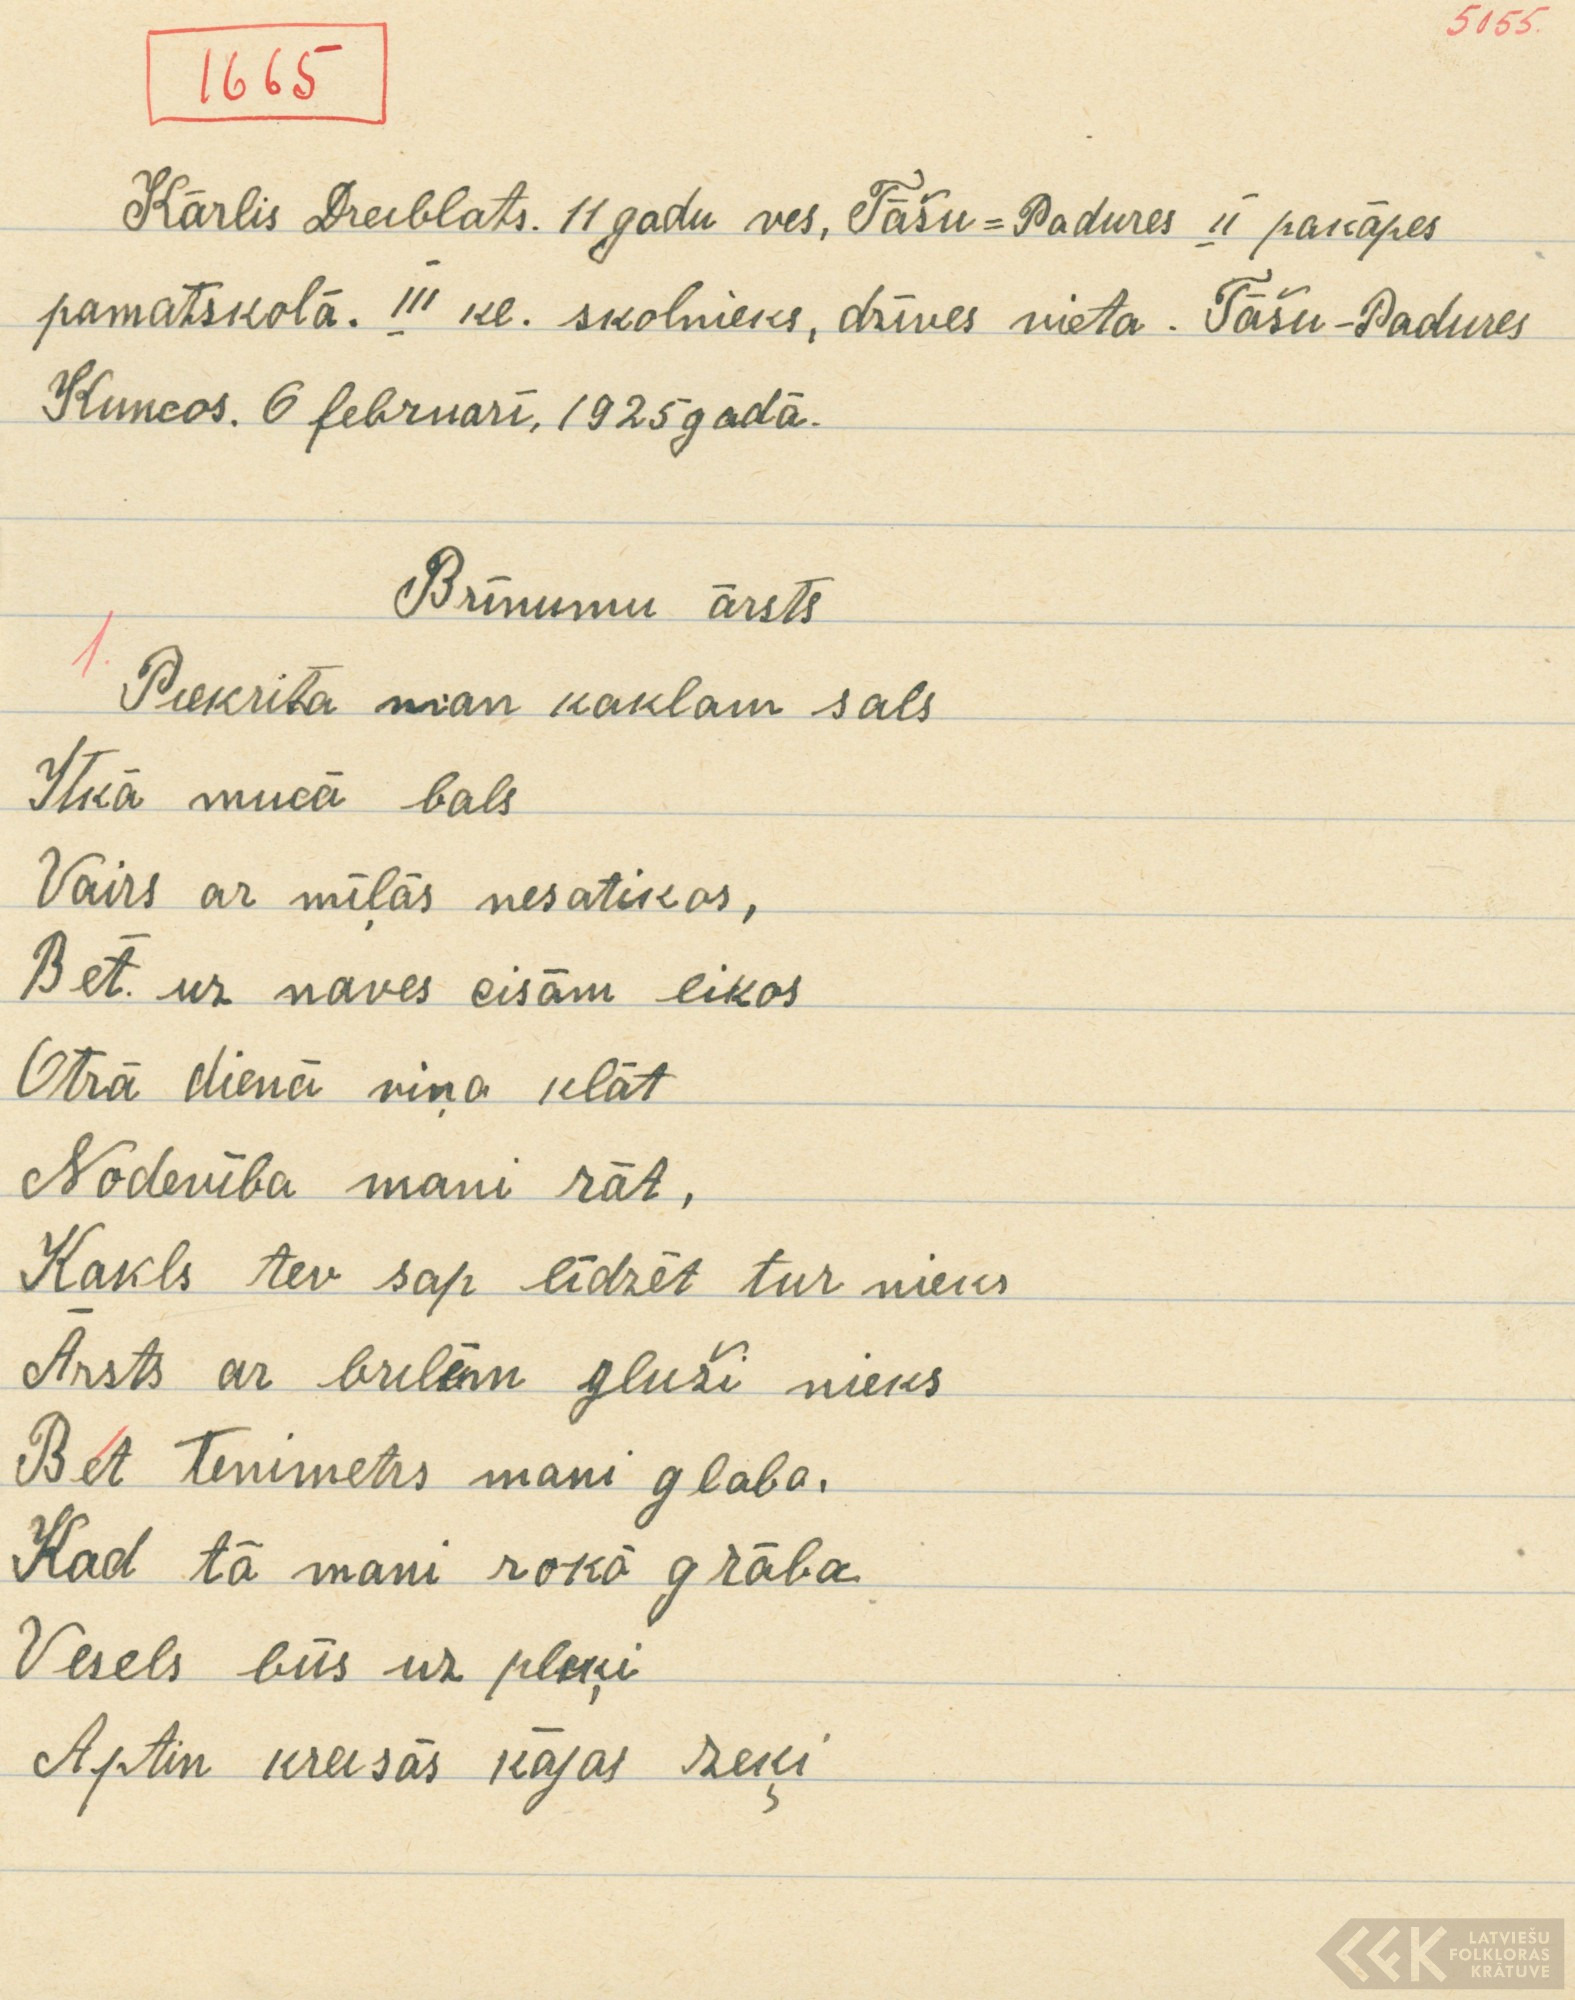 5155.
1665
Kārlis Dreiblats. 11 gadu ves, Tāšu=Padures II pakāpes
pamatskolā. III kl. skolnieks, dzīves vieta. Tāšu-Padures
Kuncos. 6 februarī, 1925 gadā.
Brīnumu ārsts
1.
Piekrita man kaklam sals
Itkā mucā bals
Vairs ar mīļās nesatikos,
Bet uz naves cisām likos
Otrā dienā viņa klāt
Nodevība mani rāt,
Kakls tev sap līdzēt tur nieks
Ārsts ar brilēm gluži nieks
Bet Tenimetrs mani glaba.
Kad tā mani rokā grāba
Vesels būs uz pleķi
Aptin kreisās kājas zeķi
LATVIEŠU
FOLKLORAS
KRĀTUVE